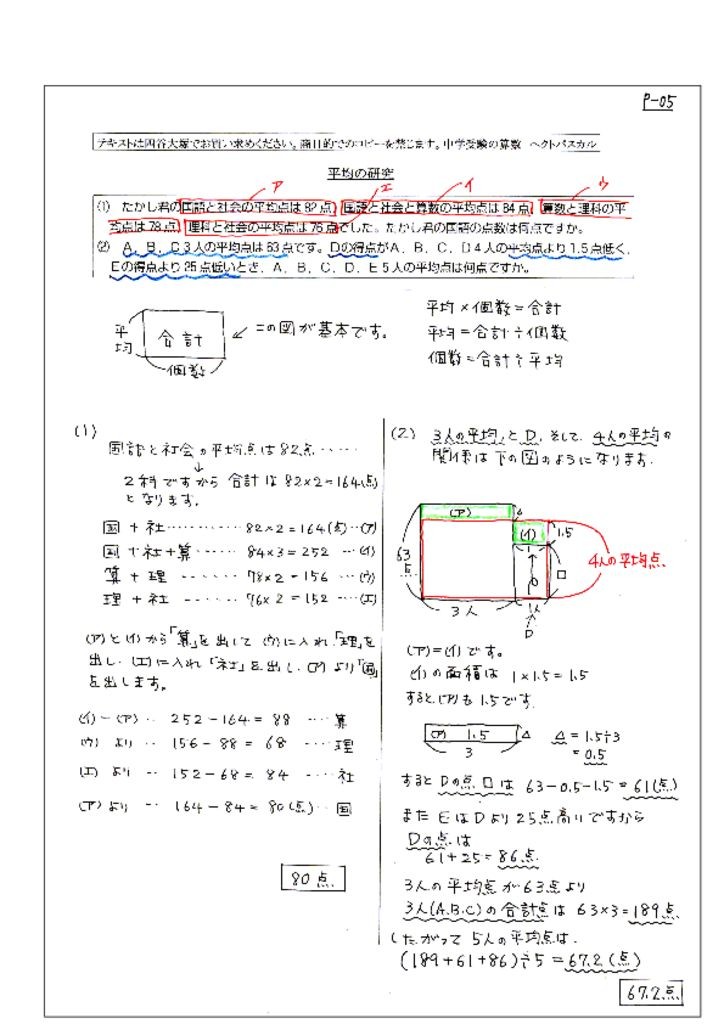 P-05
テキストは四谷大塚でお買い求めください。商目的でのコピーを禁じます。中学受験の算数 ヘクトパスカル
平均の研究
ア
エ
イ
ウ
(1) たかし君の国語と社会の平均点は82点、国語と社会と算数の平均点は84点、算数と理科の平
均点は78点、理科と社会の平均点は76点でした。たかし君の国語の点数は何点ですか。
(2) A、B、C3人の平均点は63点です。Dの得点がA、B、C、D4人の平均点より1.5点低く、
Eの得点より25点低いとき、A、B、C、D、E5人の平均点は何点ですか。
平均
合計
個数
この図が基本です。
平均×個数=合計
平均=合計÷個数
個数=合計÷平均
(1)
国語と社会の平均点は82点‥‥‥
↓
2科ですから 合計は 82×2=164(点)
となります。
国+社‥‥‥‥ 82×2=164(点)‥(ア)
国+社+算‥‥‥ 84×3=252 ‥(イ)
算+理 ‥‥‥ 78×2=156 ‥(ウ)
理+社 ‥‥‥ 76×2=152 ‥(エ)
(ア)と(イ)から「算」を出して (ウ)に入れ「理」を
出し、(エ)に入れ「社」を出し、(ア)より「国」
を出します。
(イ)-(ア)‥ 252-164=88 ‥‥算
(ウ)より ‥ 156-88=68 ‥‥理
(エ)より ‥ 152-68=84 ‥‥社
(ア)より ‥ 164-84=80(点)‥国
80点
(2) 3人の平均とD、そして 4人の平均の
関係は下の図のようになります。
(ア)
△
(イ)
1.5
63点
□
4人の平均点
3人
1人
D
(ア)=(イ)です。
(イ)の面積は 1×1.5=1.5
すると(ア)も1.5です。
(ア) 1.5 △
3
△=1.5÷3
=0.5
するとDの点□は 63-0.5-1.5=61(点)
また EはDより25点高いですから
Dの点は
61+25=86点
3人の平均点が63点より
3人(A.B.C)の合計点は 63×3=189点
したがって 5人の平均点は、
(189+61+86)÷5=67.2(点)
67.2点